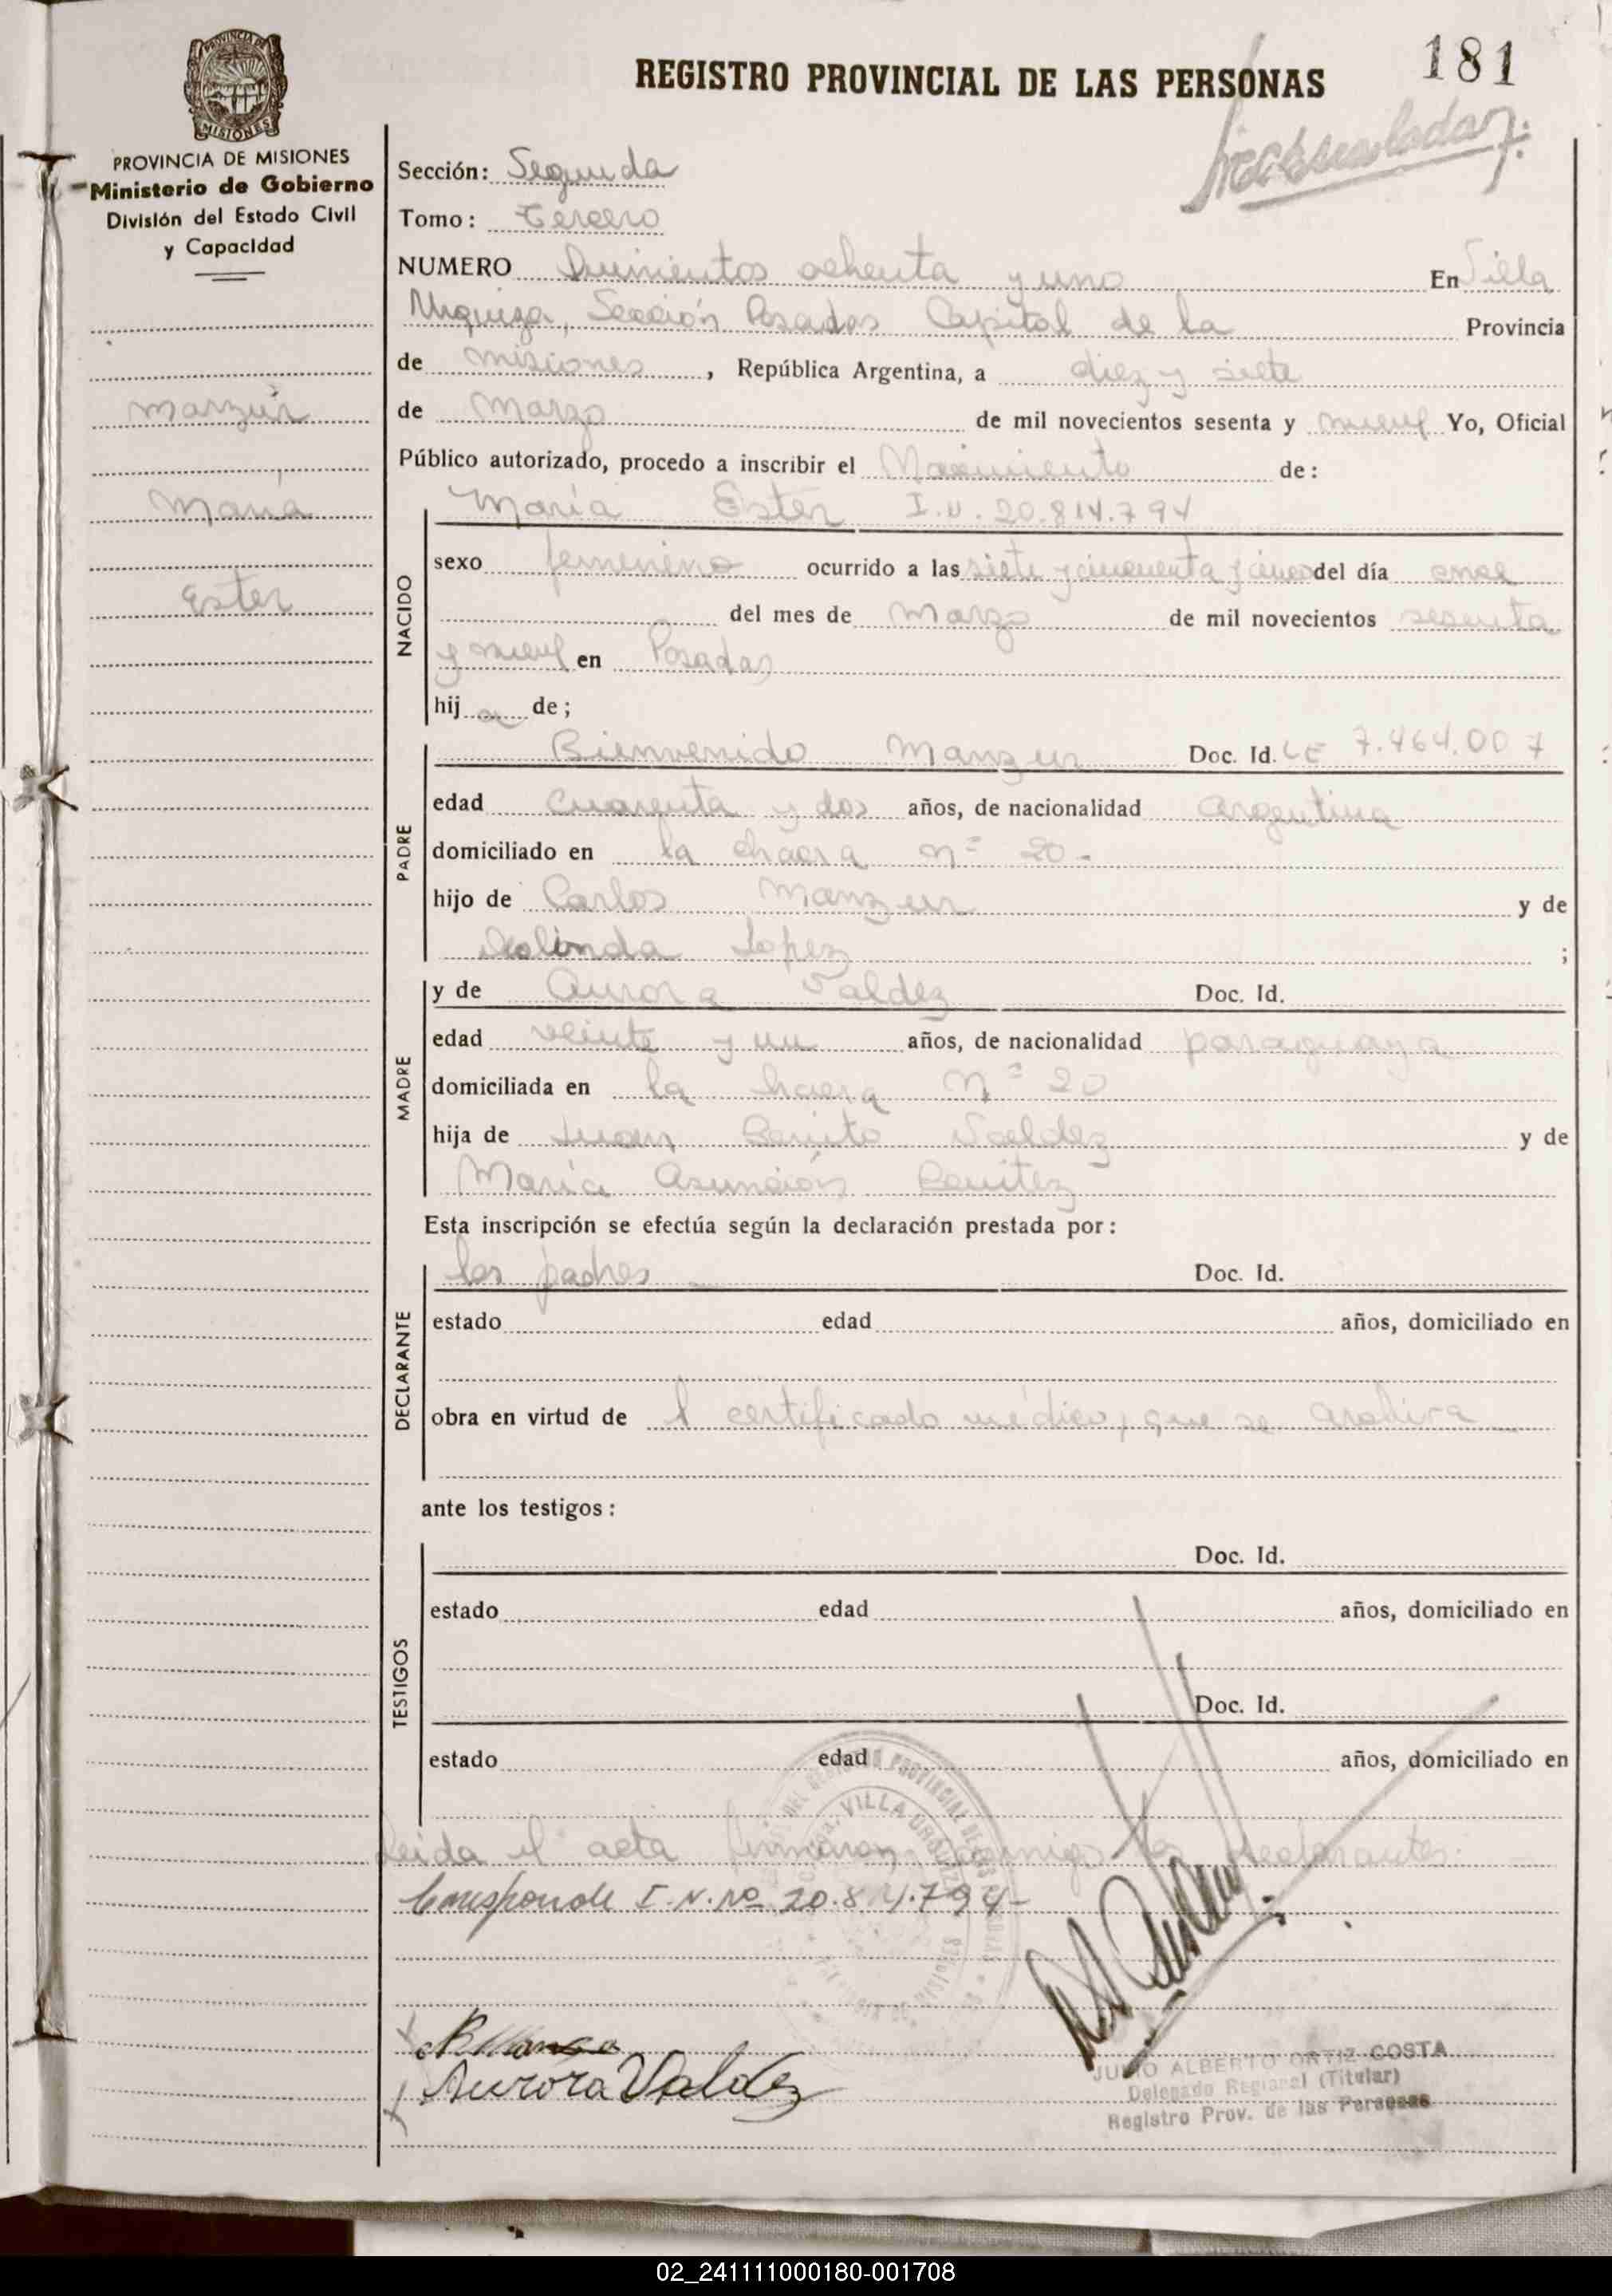 181
REGISTRO PROVINCIAL DE LAS PERSONAS
PROVINCIA DE MISIONES
MISIONES
PROVINCIA DE MISIONES
Ministerio de Gobierno
División del Estado Civil
y Capacidad
Manzur
María
Ester
Sección: Segunda
Tomo: Tercero
NUMERO ochenta y uno En Villa
Urquiza, Sección Posadas Capital de la Provincia
de Misiones, República Argentina, a diez y siete
de Marzo de mil novecientos sesenta y nueve Yo, Oficial
Público autorizado, procedo a inscribir el Nacimiento de:
NACIDO
María Ester I.N. 20.814.794
sexo femenino ocurrido a las siete y cincuenta y cinco del día once
del mes de Marzo de mil novecientos sesenta
y nueve en Posadas
hij a de;
PADRE
Bienvenido Manzur Doc. Id. LE 7.464.007
edad cuarenta y dos años, de nacionalidad argentina
domiciliado en la chacra nº 20-
hijo de Carlos Manzur y de
Lopez ;
MADRE
y de Aurora Valdez Doc. Id.
edad veinte y un años, de nacionalidad paraguaya
domiciliada en la hacra nº 20
hija de Juan Benito Valdez y de
María Asunción Benitez
Esta inscripción se efectúa según la declaración prestada por:
DECLARANTE
los padres — Doc. Id.
estado edad años, domiciliado en
obra en virtud de l certificado médico, que se archiva
ante los testigos:
TESTIGOS
Doc. Id.
estado edad años, domiciliado en
Doc. Id.
estado edad años, domiciliado en
Leida el acta firmaron conmigo los declarantes.
Corresponde I.N.Nº 20.814.794-
VILLA URQUIZA
Aurora Valdez
JULIO ALBERTO ORTIZ COSTA
Delegado Regional (Titular)
Registro Prov. de las Personas
02_241111000180-001708